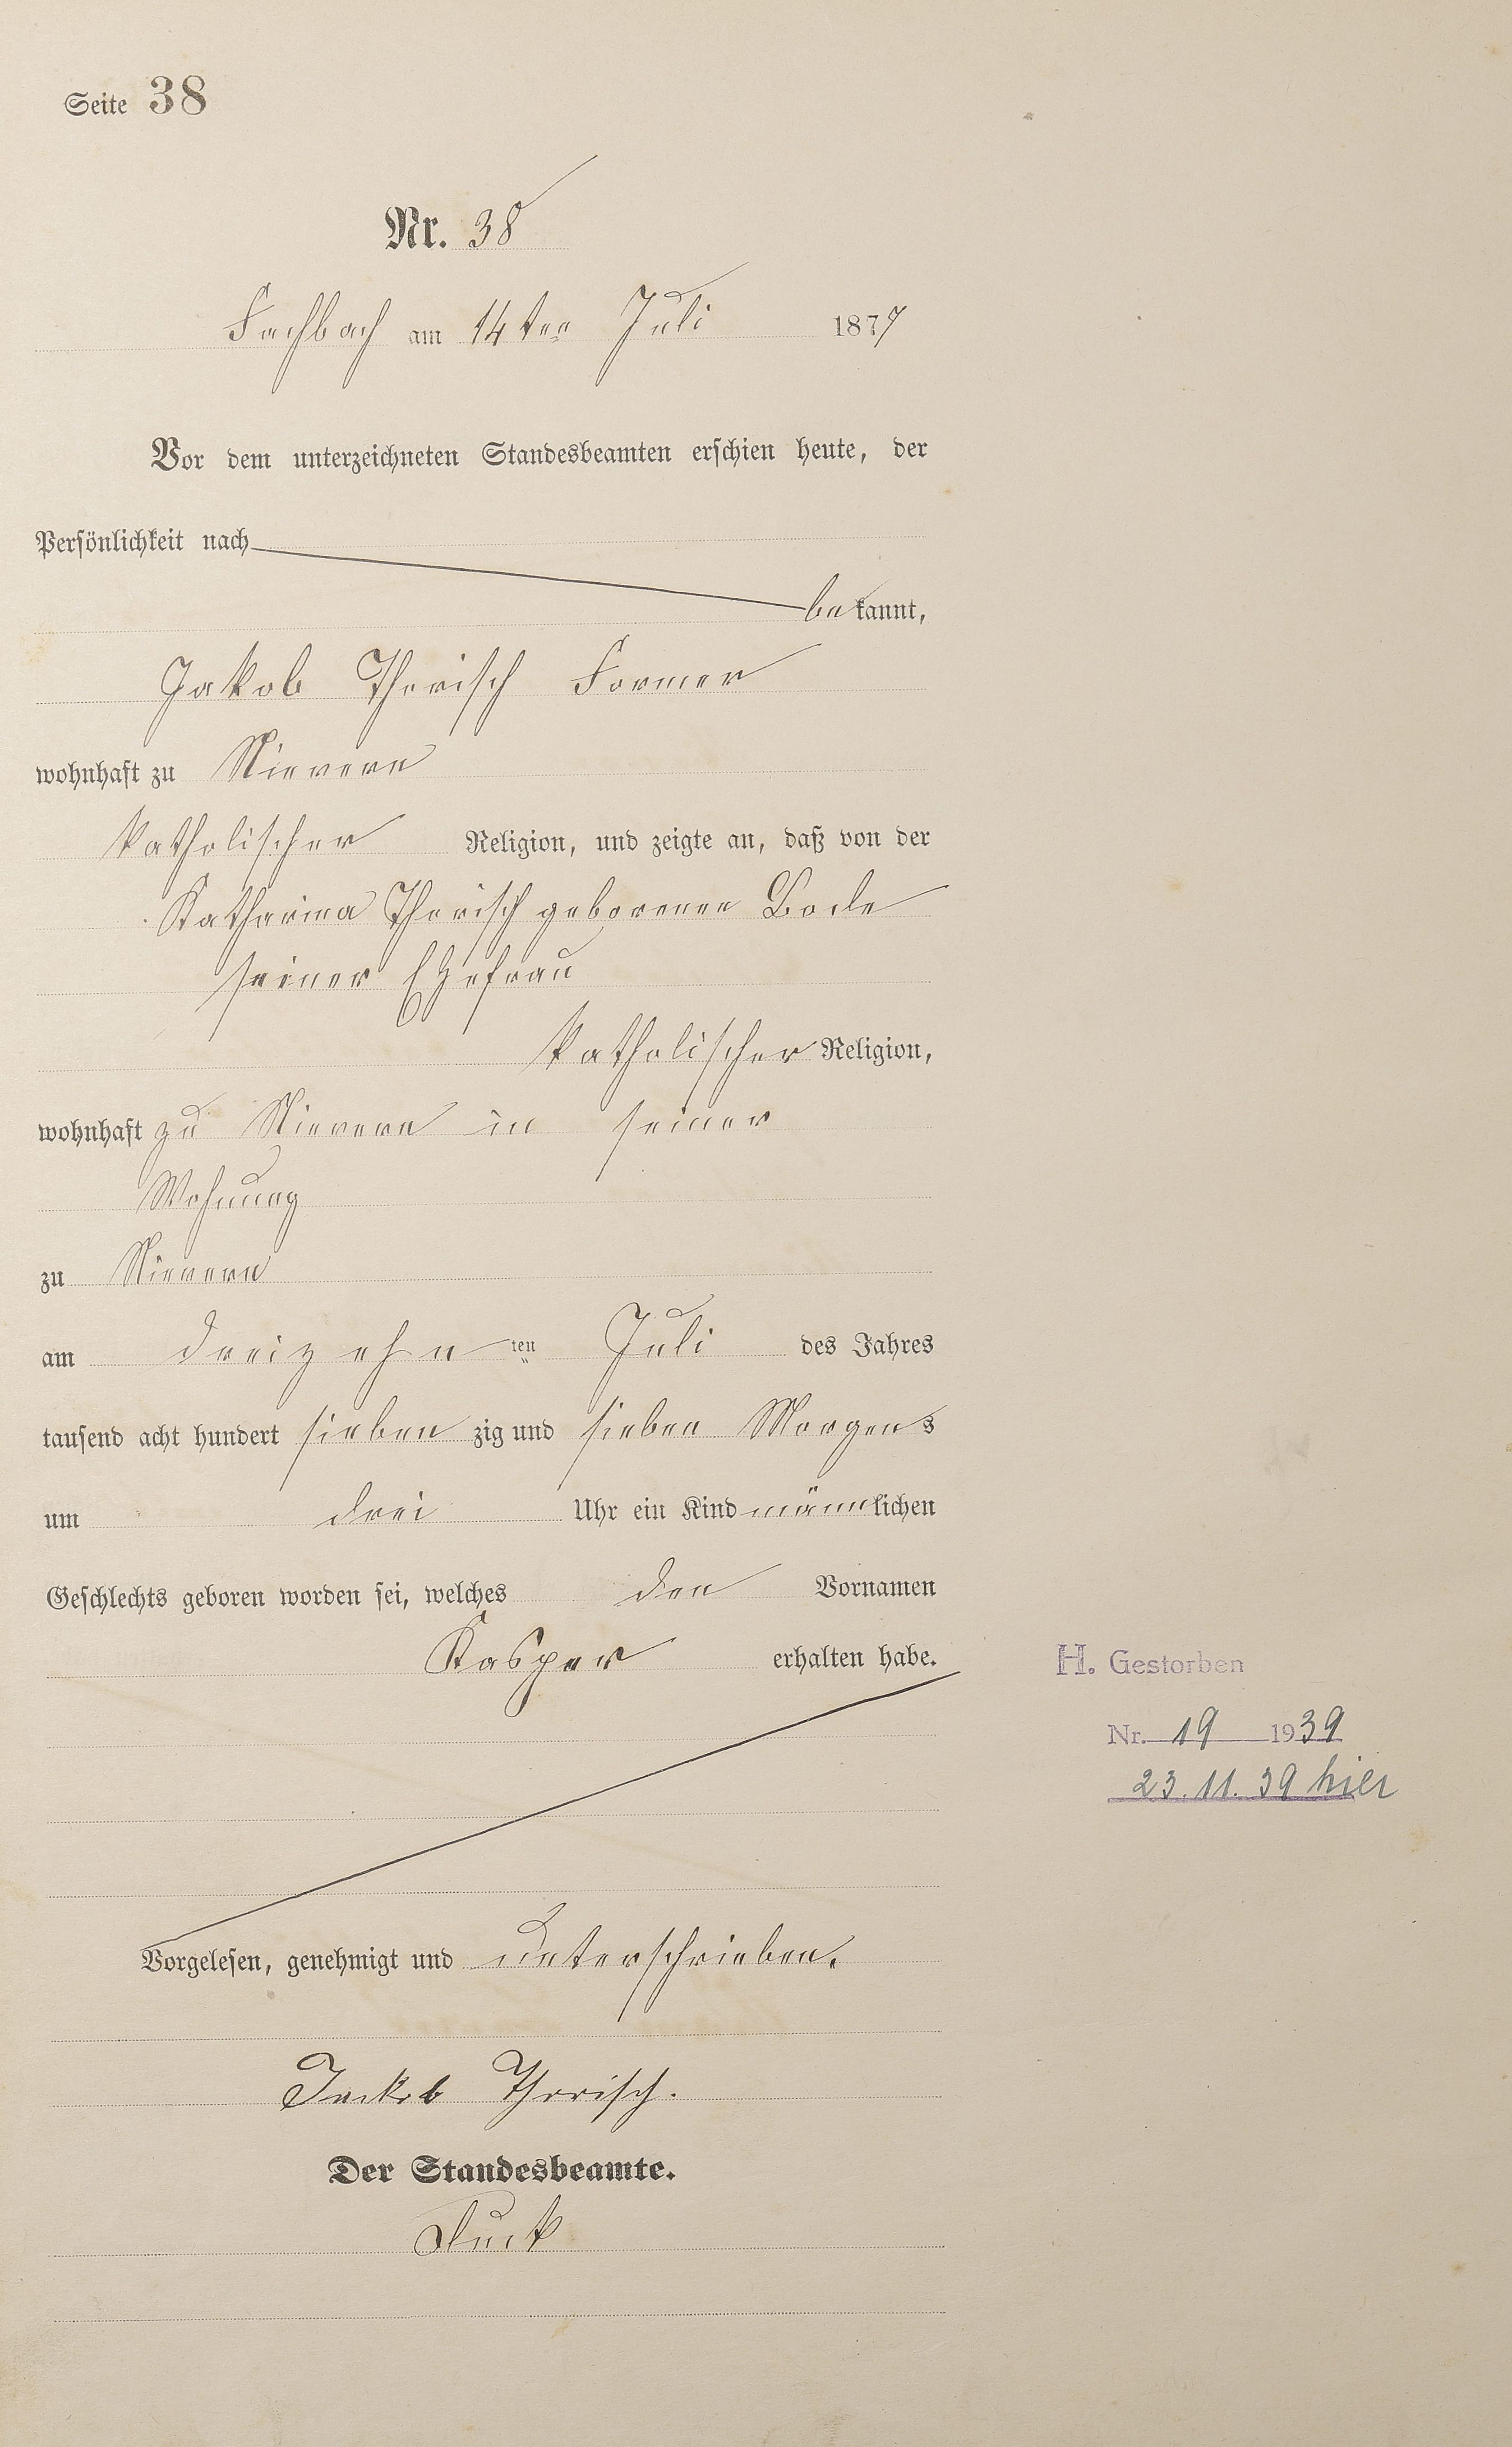 Seite 38
Nr. 38
Fachbach am 14ten Juli 1877
Vor dem unterzeichneten Standesbeamten erschien heute, der
Persönlichkeit nach
bekannt,
Jakob Therisch Former
wohnhaft zu Nievern
katholischer Religion, und zeigte an, daß von der
Katharina Therisch geborenen Bode
seiner Ehefrau
katholischer Religion,
wohnhaft zu Nievern in seiner
Wohnung
zu Nievern
am dreizehnten Juli des Jahres
tausend acht hundert siebenzig und sieben Morgens
um drei Uhr ein Kind männlichen
Geschlechts geboren worden sei, welches den Vornamen
Kasper erhalten habe.
H. Gestorben
Nr. 19 1939
23.11.39 hier
Vorgelesen, genehmigt und unterschrieben.
Jackob Therisch.
Der Standesbeamte.